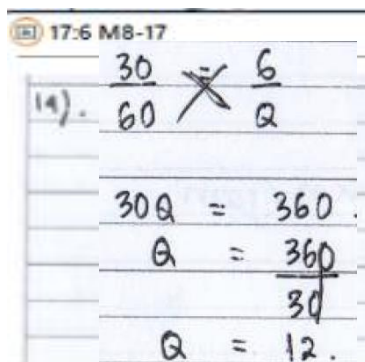 17:6 M8-17
14). 30/60 = 6/Q
30Q = 360.
Q = 360/30
Q = 12.